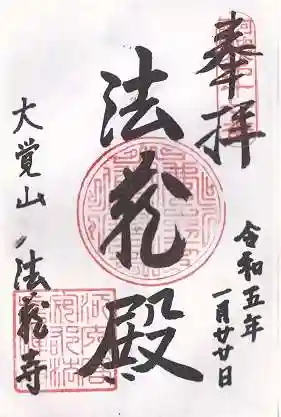 奉拝
法蔵殿
令和五年
一月廿廿日
大覚山
法蔵寺